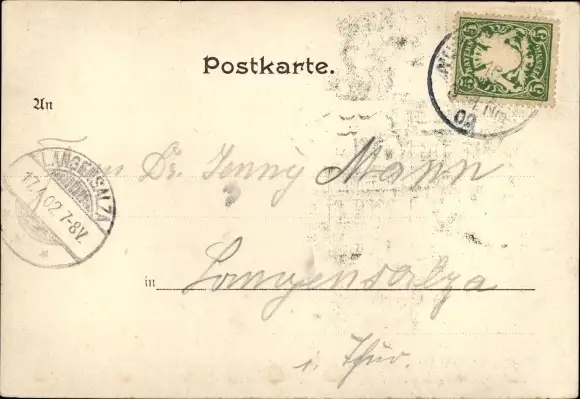 Postkarte.
BAYERN 5 PFENNIG 5
An
02
Dr. Jenny Mann
LANGENSALZA
17.4.02. 7-8V.
in Langensalza
i. Thür.